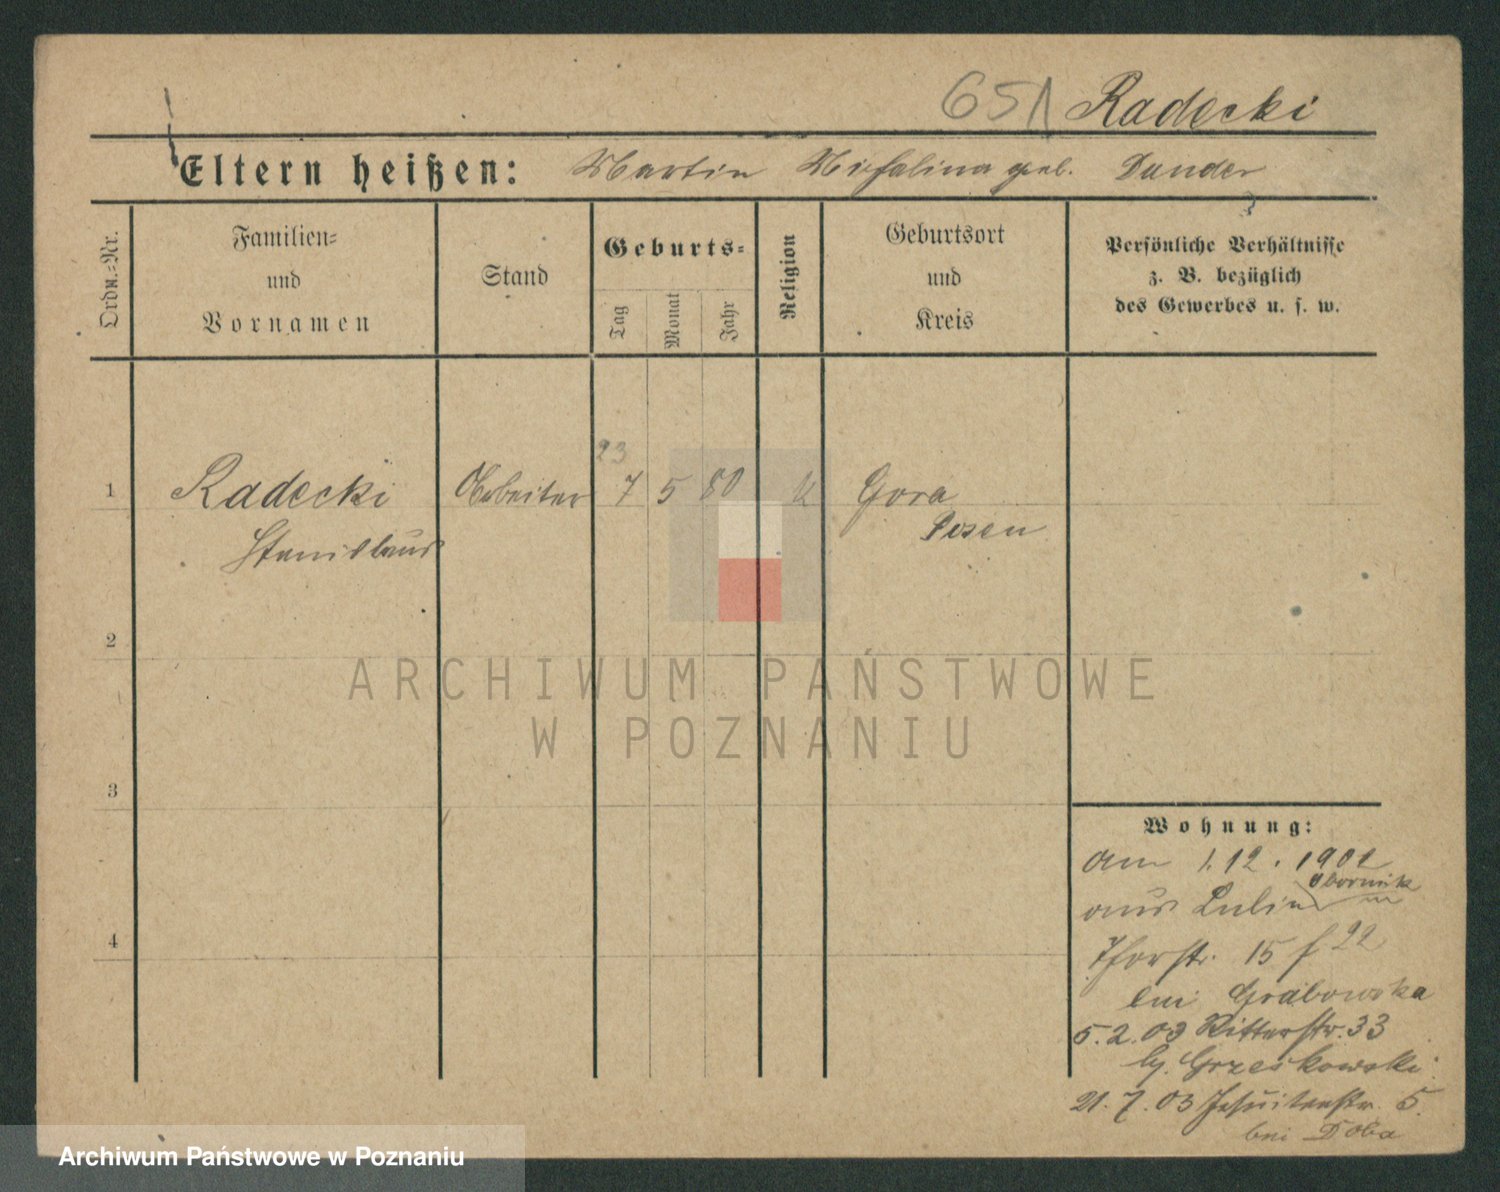 651 Radecki
Eltern heißen: Martin Michalina geb. Dander
Ordn.-Nr.
Familien-
und
Vornamen
Stand
Geburts-
Tag
Monat
Jahr
Religion
Geburtsort
und
Kreis
Persönliche Verhältnisse
z. B. bezüglich
des Gewerbes u. s. w.
23
1 Radecki Arbeiter 7 5 80 k Gora
Stanislaus Posen
2
ARCHIWUM PAŃSTWOWE
W POZNANIU
3
Wohnung:
am 1.12.1902
Obornik
aus Lulin
Thorstr. 15 f 22
bei Grabowska
5.2.03 Ritterstr. 33
b/. Grzeskowski
21.7.03 Jesuitenstr. 5.
bei Doba
4
Archiwum Państwowe w Poznaniu